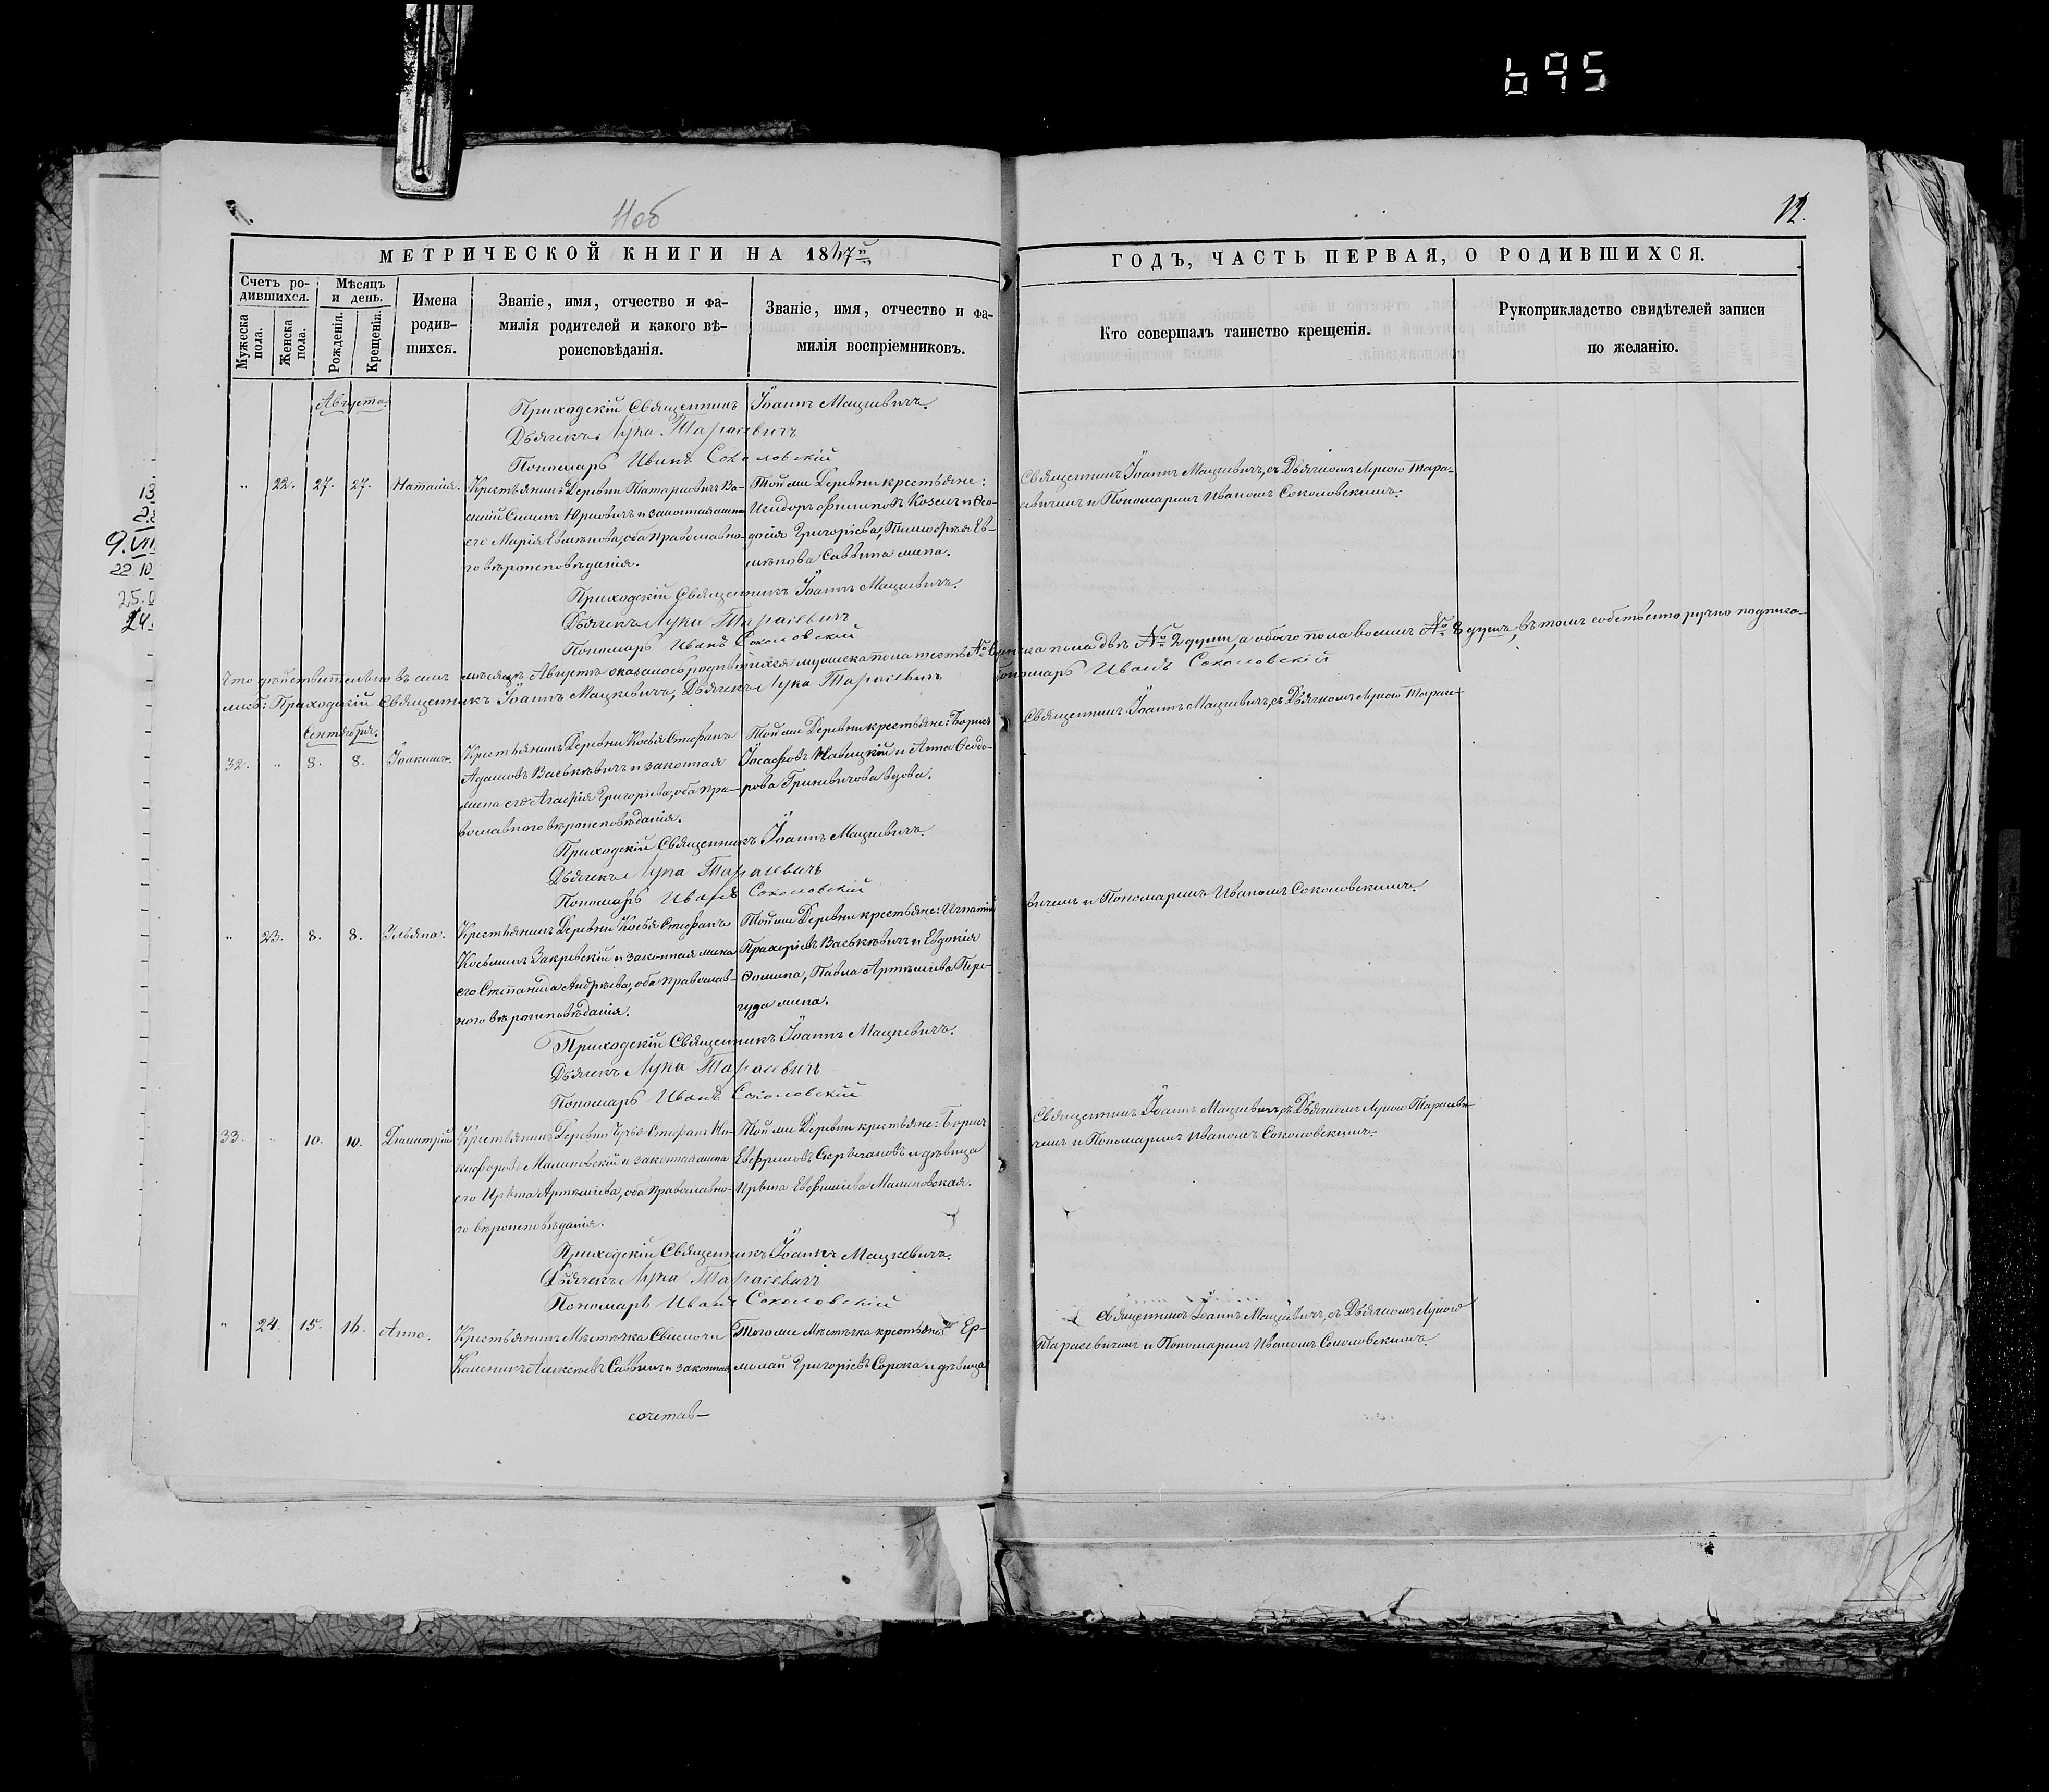 695
11об
12.
МЕТРИЧЕСКОЙ КНИГИ НА 1847й
ГОДЪ, ЧАСТЬ ПЕРВАЯ, О РОДИВШИХСЯ.
Счетъ ро-
дившихся.
Мужеска пола.
Женска пола.
Мѣсяцъ
и день.
Рожденія.
Крещенія.
Имена
родив-
шихся.
Званіе, имя, отчество и фа-
милія родителей и какого вѣ-
роисповѣданія.
Званіе, имя, отчество и фа-
милія воспріемниковъ.
Кто совершалъ таинство крещенія.
Рукоприкладство свидѣтелей записи
по желанію.
Августа.
Приходскій Священникъ Іоаннъ Мацкевичъ.
Дьячекъ Лука Тарасевичъ
Пономарь Иванъ Соколовскій
" 22. 27. 27. Наталія.
Крестьянинъ Деревни Ва-
силій Юрковичъ и законная жена
его Марія, оба православно-
го вѣроисповѣданія.
Той же Деревни крестьяне:
Исидоръ Козелъ и Ѳео-
досія Григорієва, Ев-
Саввина жена.
Священникъ Іоаннъ Мацкевичъ, съ Дьячкомъ Лукою Тара-
севичемъ и Пономаремъ Иваномъ Соколовскимъ.
Приходскій Священникъ Іоаннъ Мацкевичъ.
Дьячекъ Лука Тарасевичъ
Пономарь Иванъ Соколовскій
Что дѣйствительно въ семъ мѣсяцѣ Августѣ оказалось родившихся мужеска пола шесть № 6 женска пола двѣ № 2 души, а обоего пола восемь № 8 душъ, въ томъ собственноручно подписа-
лись: Приходскій Священникъ Іоаннъ Мацкевичъ, Дьячекъ Лука Тарасевичъ Пономарь Иванъ Соколовскій
Сентября.
32. " 8. 8. Іоакимъ.
Крестьянинъ Деревни Стефанъ
Адамовъ Васькевичъ и законная
жена его Агафія Григорієва, оба пра-
вославного вѣроисповѣданія.
Той же Деревни крестьяне: Борисъ
Іосафовъ Навицкій и Анна Ѳеодо-
рова Гриневичова вдова.
Священникъ Іоаннъ Мацкевичъ, съ Дьячкомъ Лукою Тарасе-
вичемъ и Пономаремъ Иваномъ Соколовскимъ.
Приходскій Священникъ Іоаннъ Мацкевичъ.
Дьячекъ Лука Тарасевичъ
Пономарь Иванъ Соколовскій
" 23. 8. 8. Ульяна.
Крестьянинъ Деревни Стефанъ
Косьминъ Закревскій и законная жена
его Степанида Андрѣева, оба православ-
ного вѣроисповѣданія.
Той же Деревни крестьяне: Игнатій
Васькевичъ и Евдокія
Ѳомина, Павла Артемієва Пере-
гуда жена.
Приходскій Священникъ Іоаннъ Мацкевичъ.
Дьячекъ Лука Тарасевичъ
Пономарь Иванъ Соколовскій
33. " 10. 10. Димитрій
Крестьянинъ Деревни Стефанъ Ни-
кифоровъ Малиновскій и законная жена
его Ирына Артемієва, оба православно-
го вѣроисповѣданія.
Той же Деревни крестьяне: Борисъ
и дѣвица
Ирына Евфимієва Малиновская.
Священникъ Іоаннъ Мацкевичъ, съ Дьячкомъ Лукою Тарасеви-
чемъ и Пономаремъ Иваномъ Соколовскимъ.
Приходскій Священникъ Іоаннъ Мацкевичъ.
Дьячекъ Лука Тарасевичъ
Пономарь Иванъ Соколовскій
" 24. 15. 16. Анна.
Крестьянинъ Мѣстечка Свислочи
Алексѣевъ Саввичъ и законная
Того же Мѣстечка крестьяне Ер-
молай Григорієвъ Сорока и дѣвица
Священникъ Іоаннъ Мацкевичъ, съ Дьячкомъ Лукою
Тарасевичемъ и Пономаремъ Иваномъ Соколовскимъ.